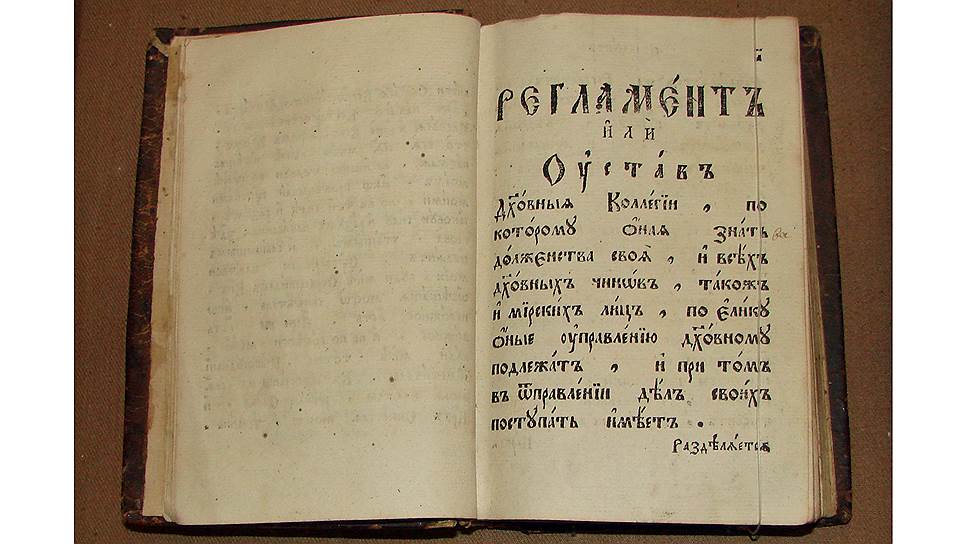 РЕГЛАМЕ́НТЪ
и҆лѝ
Оу҆ста́въ
дх҃о́вныѧ Колле́гїи , по
кото́рому ѻ҆́наѧ зна́ть
до́лженства своѧ̀ , и҆ всѣ́хъ
дх҃о́вныхъ чинѡ́въ , та́кожъ
и҆ мїрски́хъ ли́цъ , по є҆ли́ку
ѻ҆́ные оу҆правле́нїю дх҃о́вному
подлежа́тъ , и҆ при то́мъ
въ ѿправле́нїи дѣ́лъ свои́хъ
поступа́ть и҆мѣ́етъ .
Раздѣлѧ́етсѧ